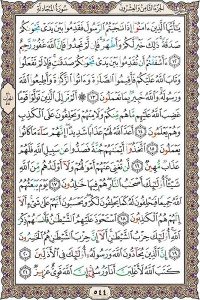 الجزء الثامن والعشرون سورة المجادلة
يَٰٓأَيُّهَا ٱلَّذِينَ ءَامَنُوٓا۟ إِذَا نَٰجَيْتُمُ ٱلرَّسُولَ فَقَدِّمُوا۟ بَيْنَ يَدَىْ نَجْوَىٰكُمْ
صَدَقَةً ۚ ذَٰلِكَ خَيْرٌ لَّكُمْ وَأَطْهَرُ ۚ فَإِن لَّمْ تَجِدُوا۟ فَإِنَّ ٱللَّهَ غَفُورٌ رَّحِيمٌ ١٢
ءَأَشْفَقْتُمْ أَن تُقَدِّمُوا۟ بَيْنَ يَدَىْ نَجْوَىٰكُمْ صَدَقَٰتٍ ۚ فَإِذْ لَمْ تَفْعَلُوا۟
وَتَابَ ٱللَّهُ عَلَيْكُمْ فَأَقِيمُوا۟ ٱلصَّلَوٰةَ وَءَاتُوا۟ ٱلزَّكَوٰةَ وَأَطِيعُوا۟ ٱللَّهَ
وَرَسُولَهُۥ ۚ وَٱللَّهُ خَبِيرٌۢ بِمَا تَعْمَلُونَ ١٣ أَلَمْ تَرَ إِلَى ٱلَّذِينَ تَوَلَّوْا۟ قَوْمًا
غَضِبَ ٱللَّهُ عَلَيْهِم مَّا هُم مِّنكُمْ وَلَا مِنْهُمْ وَيَحْلِفُونَ عَلَى ٱلْكَذِبِ
وَهُمْ يَعْلَمُونَ ١٤ أَعَدَّ ٱللَّهُ لَهُمْ عَذَابًا شَدِيدًا ۖ إِنَّهُمْ سَآءَ مَا كَانُوا۟
يَعْمَلُونَ ١٥ ٱتَّخَذُوٓا۟ أَيْمَٰنَهُمْ جُنَّةً فَصَدُّوا۟ عَن سَبِيلِ ٱللَّهِ فَلَهُمْ
عَذَابٌ مُّهِينٌ ١٦ لَّن تُغْنِىَ عَنْهُمْ أَمْوَٰلُهُمْ وَلَآ أَوْلَٰدُهُم مِّنَ ٱللَّهِ
شَيْـًٔا ۚ أُو۟لَٰٓئِكَ أَصْحَٰبُ ٱلنَّارِ ۖ هُمْ فِيهَا خَٰلِدُونَ ١٧ يَوْمَ يَبْعَثُهُمُ ٱللَّهُ
جَمِيعًا فَيَحْلِفُونَ لَهُۥ كَمَا يَحْلِفُونَ لَكُمْ ۖ وَيَحْسَبُونَ أَنَّهُمْ عَلَىٰ شَىْءٍ ۚ
أَلَآ إِنَّهُمْ هُمُ ٱلْكَٰذِبُونَ ١٨ ٱسْتَحْوَذَ عَلَيْهِمُ ٱلشَّيْطَٰنُ فَأَنسَىٰهُمْ ذِكْرَ
ٱللَّهِ ۚ أُو۟لَٰٓئِكَ حِزْبُ ٱلشَّيْطَٰنِ ۚ أَلَآ إِنَّ حِزْبَ ٱلشَّيْطَٰنِ هُمُ ٱلْخَٰسِرُونَ
١٩ إِنَّ ٱلَّذِينَ يُحَآدُّونَ ٱللَّهَ وَرَسُولَهُۥٓ أُو۟لَٰٓئِكَ فِى ٱلْأَذَلِّينَ ٢٠
كَتَبَ ٱللَّهُ لَأَغْلِبَنَّ أَنَا۠ وَرُسُلِىٓ ۚ إِنَّ ٱللَّهَ قَوِىٌّ عَزِيزٌ ٢١
٥٤٤